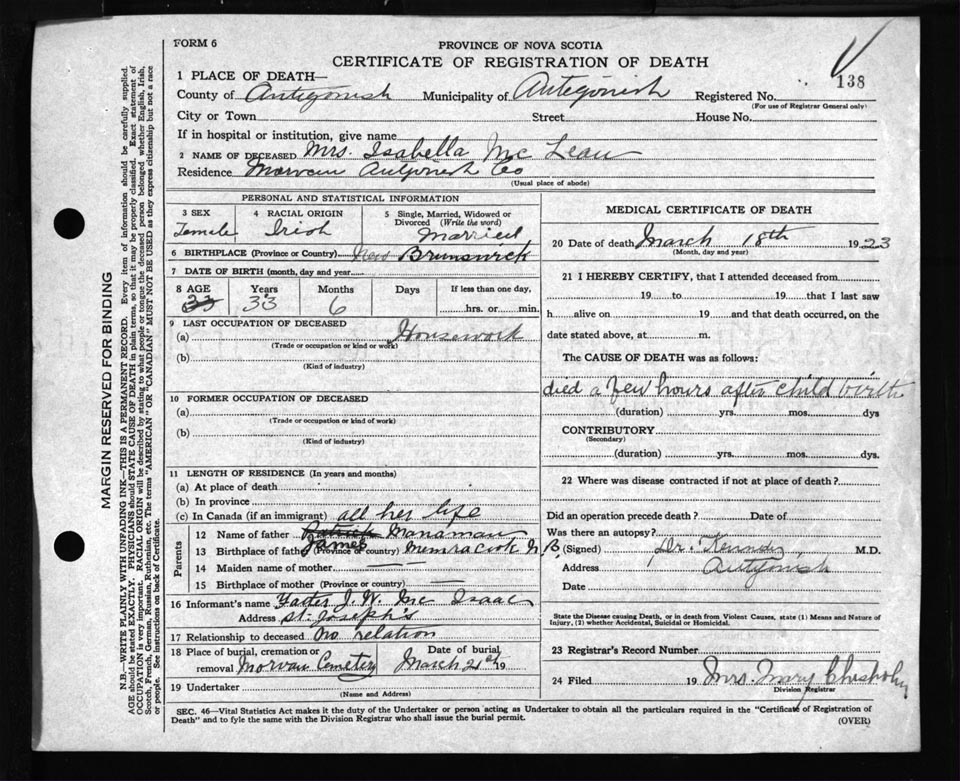 FORM 6
PROVINCE OF NOVA SCOTIA
CERTIFICATE OF REGISTRATION OF DEATH
138
1 PLACE OF DEATH—
County of Antigonish Municipality of Antigonish Registered No.
(For use of Registrar General only)
City or Town Street House No.
If in hospital or institution, give name
2 NAME OF DECEASED Mrs. Isabella Mc Lean
Residence Morvan Antigonish Co
(Usual place of abode)
PERSONAL AND STATISTICAL INFORMATION
3 SEX
Female
4 RACIAL ORIGIN
Irish
5 Single, Married, Widowed or Divorced (Write the word)
Married
6 BIRTHPLACE (Province or Country) New Brunswick
7 DATE OF BIRTH (month, day and year)
8 AGE Years Months Days If less than one day,
33 33 6 hrs. or min.
9 LAST OCCUPATION OF DECEASED
(a) Housework
(Trade or occupation or kind or work)
(b)
(Kind of industry)
10 FORMER OCCUPATION OF DECEASED
(a)
(Trade or occupation or kind of work)
(b)
(Kind of industry)
11 LENGTH OF RESIDENCE (In years and months)
(a) At place of death
(b) In province
(c) In Canada (if an immigrant) all her life
Parents
12 Name of father Patrick James
13 Birthplace of father (Province or country) Memracook N B.
14 Maiden name of mother ——
15 Birthplace of mother (Province or country) —
16 Informant's name J. W. Mc Isaac
Address St. Joseph's
17 Relationship to deceased No relation
18 Place of burial, cremation or removal Morvan Cemetery
Date of burial March 21st 19
19 Undertaker
(Name and Address)
MEDICAL CERTIFICATE OF DEATH
20 Date of death March 18th 1923
(Month, day and year)
21 I HEREBY CERTIFY, that I attended deceased from
19 to 19 that I last saw
h alive on 19 and that death occurred, on the
date stated above, at m.
The CAUSE OF DEATH was as follows:
died a few hours after child birth
(duration) yrs. mos. dys
CONTRIBUTORY
(Secondary)
(duration) yrs. mos. dys.
22 Where was disease contracted if not at place of death?
Did an operation precede death? Date of
Was there an autopsy?
(Signed) Dr. Kennedy M.D.
Address Antigonish
Date
State the Disease causing Death, or in death from Violent Causes, state (1) Means and Nature of Injury, (2) whether Accidental, Suicidal or Homicidal.
23 Registrar's Record Number
24 Filed 19 Mrs. Mary Chisholm
Division Registrar
SEC. 46—Vital Statistics Act makes it the duty of the Undertaker or person acting as Undertaker to obtain all the particulars required in the "Certificate of Registration of
Death" and to fyle the same with the Division Registrar who shall issue the burial permit.
(OVER)
MARGIN RESERVED FOR BINDING
N.B.—WRITE PLAINLY WITH UNFADING INK—THIS IS A PERMANENT RECORD. Every item of information should be carefully supplied.
AGE should be stated EXACTLY. PHYSICIANS should STATE CAUSE OF DEATH in plain terms, so that it may be properly classified. Exact statement of
OCCUPATION is very important. RACIAL ORIGIN will be described by stating to what people or tongue the deceased person belonged whether English, Irish,
Scotch, French, German, Russian, Ruthenian, etc. The terms "AMERICAN" OR "CANADIAN" MUST NOT BE USED as they express citizenship but not a race
or people. See instructions on back of Certificate.